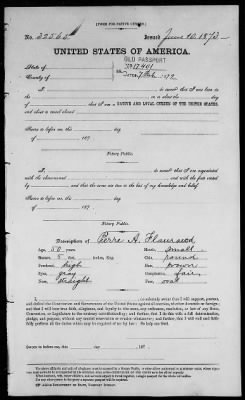 [FORM FOR NATIVE CITIZEN.]
No. 32565 Issued June 10, 1873
UNITED STATES OF AMERICA.
State of OLD PASSPORT
County of No 17401
swear that I was born in the
day of
that I am a NATIVE AND LOYAL CITIZEN OF THE UNITED STATES,
and about to travel abroad
Sworn to before me, this day
of 187
Notary Public.
I am acquainted
with the above-named and with the facts stated
by and that the same are true to the best of my knowledge and belief.
Sworn to before me, this day
of 187
Notary Public.
Description of
Age, 50 years Mouth, small
Stature, 5 feet inches, Eng. Chin, round
Forehead, high Hair, brown
Eyes, gray Complexion, fair
Nose, straight Face, oval
I, do solemnly swear that I will support, protect,
and defend the Constitution and Government of the United States against all enemies, whether domestic or foreign;
and that I will bear true faith, allegiance, and loyalty to the same, any ordinance, resolution, or law of any State,
Convention, or Legislature to the contrary notwithstanding; and further, that I do this with a full determination,
pledge, and purpose, without any mental reservation or evasion whatsoever; and further, that I will well and
faithfully perform all the duties which may be required of me by law: So help me God.
Sworn to before me, this day 187